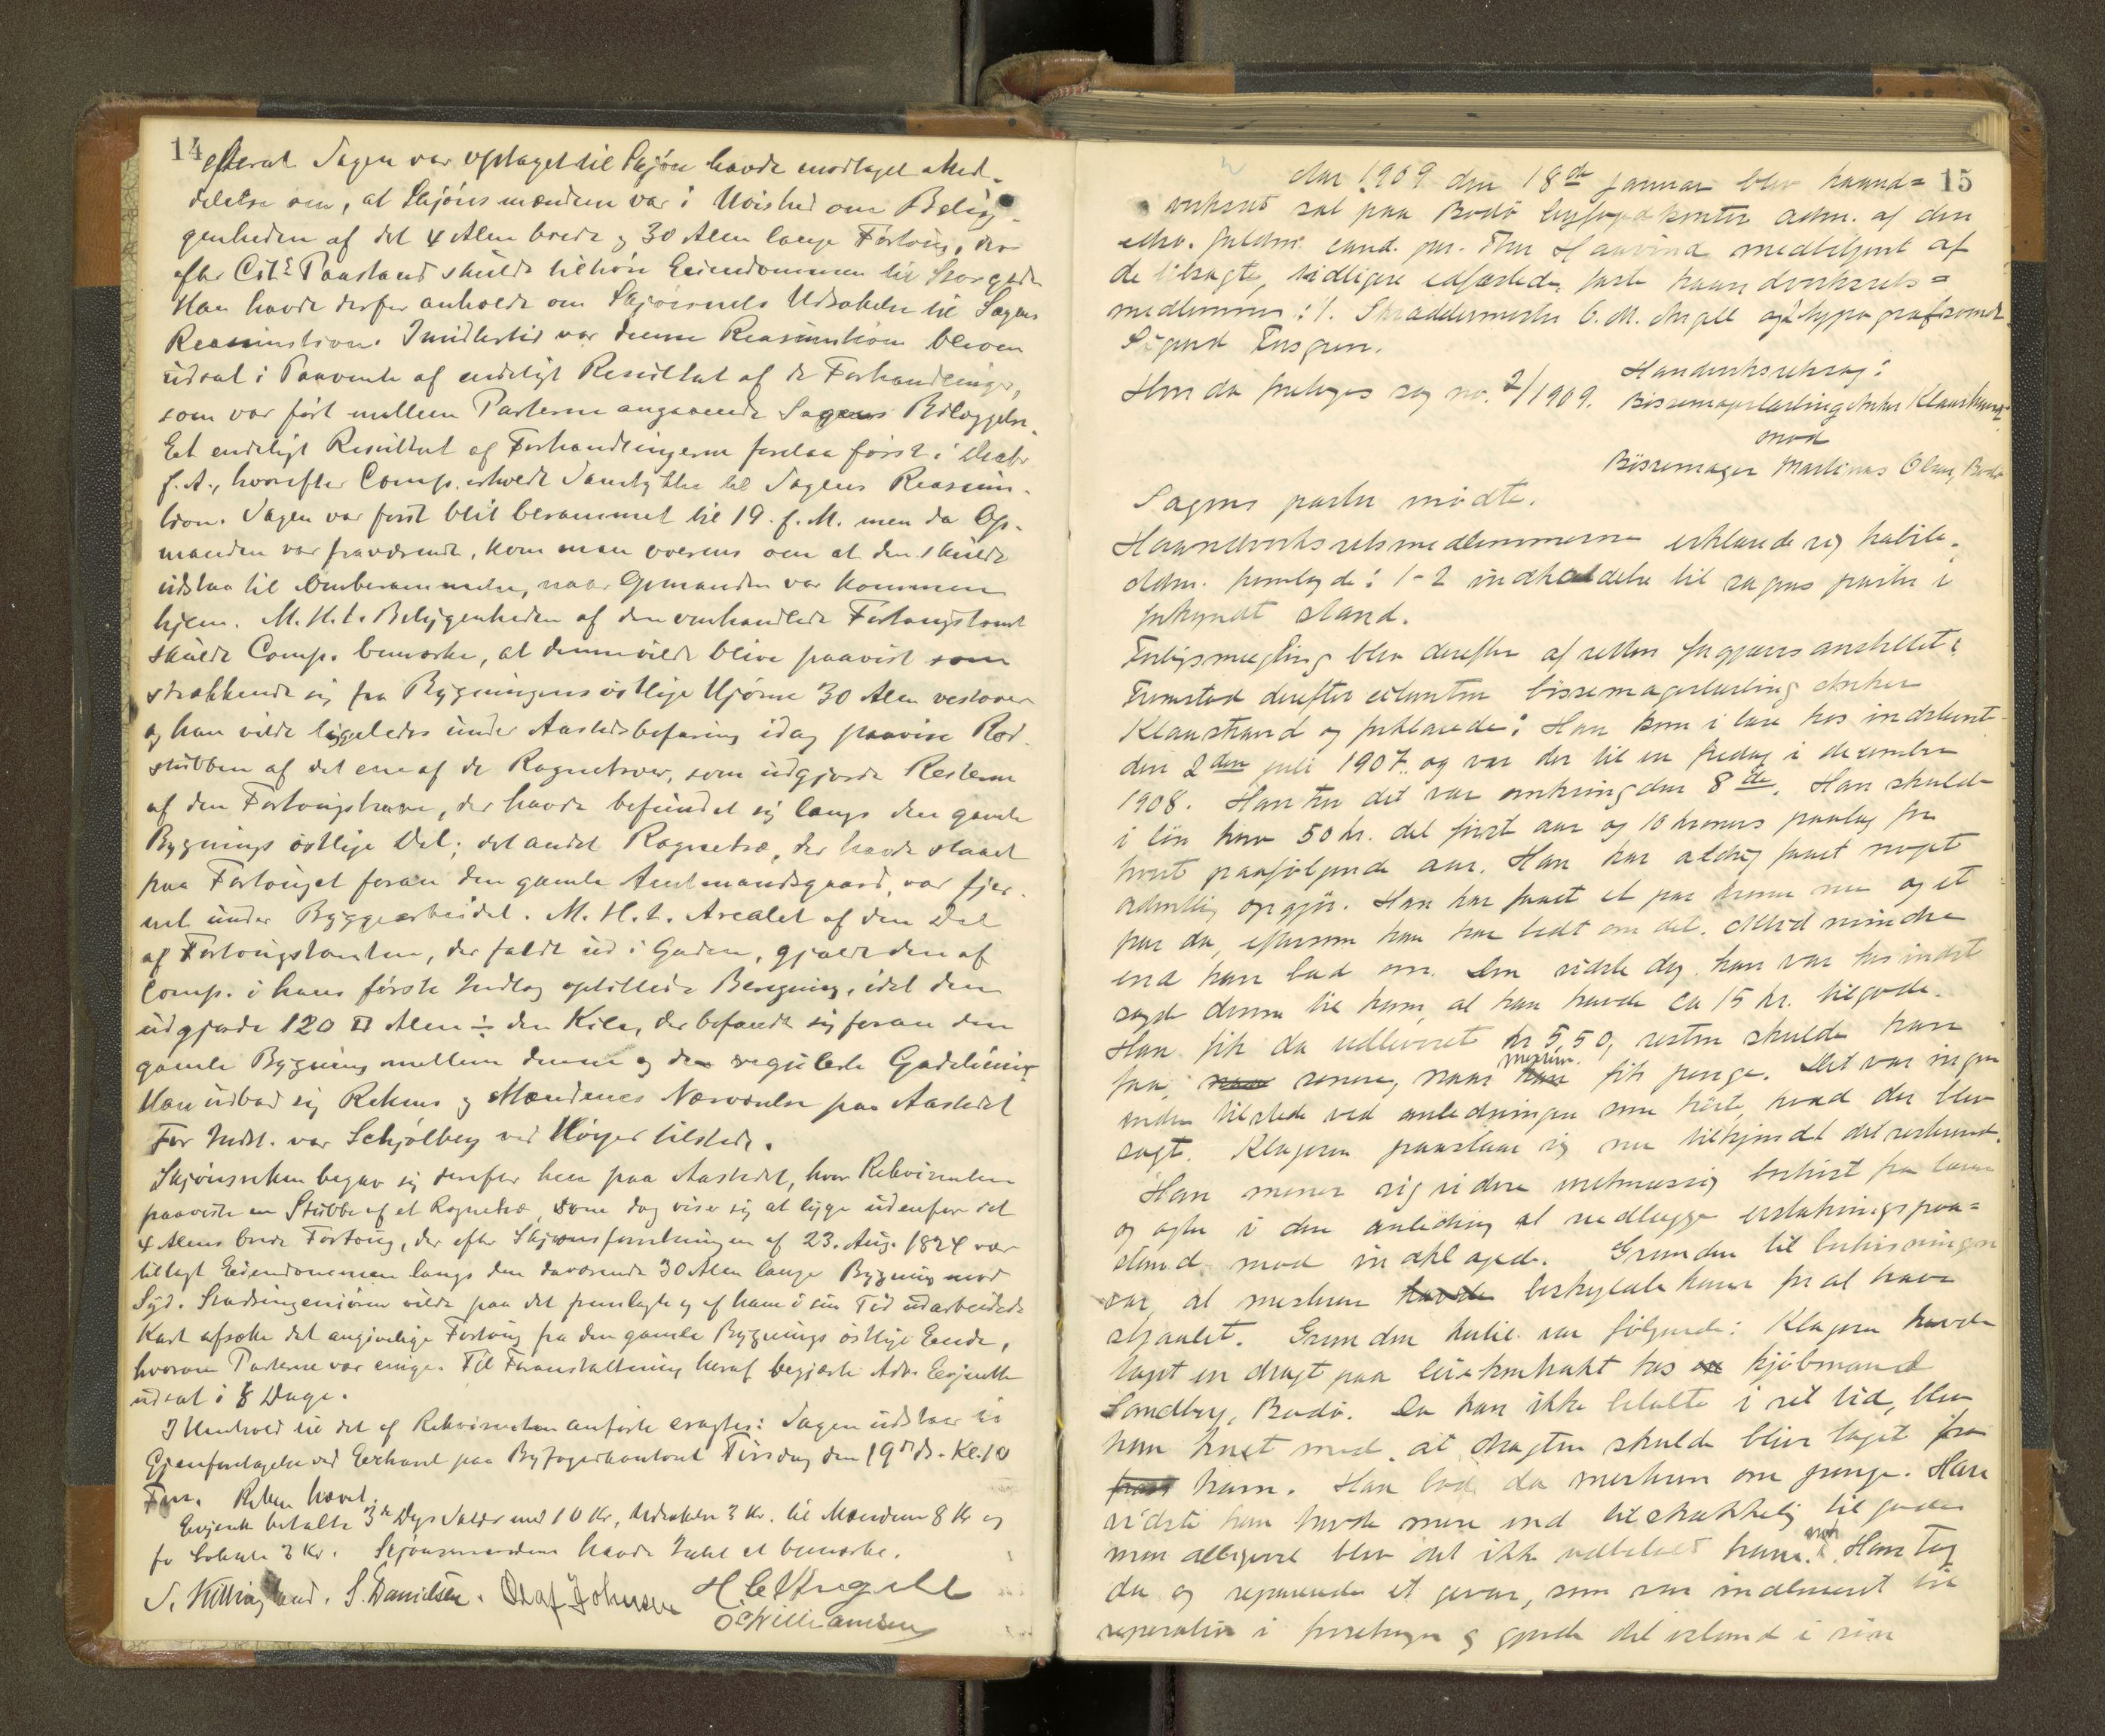 14
efterat Sagen var optaget til Skjøn havde modtaget Med-
delelse om, at Skjønsmændene var i Uvished om Belig-
genheden af det 4 Alen brede og 30 Alen lange Fortoug, der
efter Cit.s Paastand skulde tilhøre Eiendommen til Storgaden
Han havde derfor anholdt om Skjønnets Udsættelse til Sagens
Reassumtion. Imidlertid var denne Reassumtion bleven
udsat i Paavente af endeligt Resultat af de Forhandlinger,
som var ført mellem Parterne angaaende Sagens Bilæggelse.
Et endeligt Resultat af Forhandlingerne forelaa først i Oktbr
f. A., hvorefter Comp. erholdt Samtykke til Sagens Reassum-
tion. Sagen var først blit berammet til 19. f. M. men da Op-
manden var fraværende, kom man overens om at den skulde
udstaa til Omberammelse, naar Opmanden var kommen
hjem. M. H. t. Beliggenheden af den omhandlede Fortougstomt
skulde Comp. bemærke, at denne vilde blive paavist som
strækkende sig fra Bygningens østlige Hjørne 30 Alen vestover
og han vilde ligeledes under Aastedsbefaring idag paavise Rod-
stubben af det ene af de Rognetrær, som udgjorde Resterne
af den Fortougshave, der havde befundet sig langs den gamle
Bygnings østlige Del; det andet Rognetræ, der havde staaet
paa Fortouget foran den gamle Amtmandsgaard, var fjer-
net under Byggearbeidet. M. H. t. Arealet af den Del
af Fortougstomten, der faldt ud i Gaden, gjaldt den af
Comp. i hans første Indlæg opstillede Beregning, idet den
udgjorde 120 □ Alen ÷ den Kile, der befandt sig foran den
gamle Bygning mellem denne og den regulerte Gadelinie
Han udbad sig Rettens og Mændenes Nærværelse paa Aastedet
For Indst. var Schjølberg ved Høyer tilstede.
Skjønsretten begav sig derefter hen paa Aastedet, hvor Rekvirenten
paaviste en Stubbe af et Rognetræ, som dog viser sig at ligge udenfor det
4 Alens brede Fortoug, der efter Skjønsforretningen af 23. Aug. 1824 var
tillagt Eiendommen langs den daværende 30 Alen lange Bygning mod
Syd. Stadsingeniøren vilde paa det fremlagte og af ham i sin Tid udarbeidede
Kart afsætte det angivelige Fortoug fra den gamle Bygnings østlige Ende,
hvorom Parterne var enige. Til Foranstaltning heraf begjærte Adv. Evjenth
udsat i 8 Dage.
I Henhold til det af Rekvirenten anførte eragtes: Sagen udstaar til
Gjenforetagelse ved Exhånd paa Byfogedkontoret Tirsdag den 19de ds. Kl. 10
Form. Retten hævet.
Evjenth betalte 3de Dags Salær med 10 Kr, Udskrift 3 Kr. til Mændene 8 Kr og
for Lokale 2 Kr. Skjønsmændene havde Intet at bemærke.
S. Killingland. S. Danielsen. Olaf Johnsen H. C. Angell
O. Williamsen
15
Aar 1909 den 18de januar blev haand-
verksret sat paa Bodø byfogedkontor adm. af den
edsv. fuldm. cand. jur. Thor Haavind medbetjent af
de tilsagte, tidligere edfæstede, faste haandverksrets-
medlemmer: 1. Skræddermester C. M. Angell og 2 typograf
Sigurd Ensgren.
Hvor da foretoges sag no. 2/1909.
Haandverksretssag:
Bøssemagerlærling Anker Klaustrand
mod
Bøssemager Martinus Olsen, Bodø
Sagens parter mødte.
Haandverksretsmedlemmerne erklærede sig habile.
Adm. fremlagde: 1-2 indkaldelse til sagens parter i
forkyndt stand.
Forligsmegling blev derefter af retten forgjæves anstillet.
Fremstod derefter citanten bøssemagerlærling Anker
Klaustrand og forklarede: Han kom i lære hos indstevnt
den 2den juli 1907 og var der til en fredag i dezember
1908. Han tror det var omkring den 8de. Han skulde
i løn have 50 kr. det først aar og 10 kroners paalæg for
hvert paafølgende aar. Han har aldrig faaet noget
ordentlig opgjør. Han har faaet et par kroner nu og et
par da, eftersom han har bedt om det. Altid mindre
end han bad om. Den sidste dag han var hos indst
sagde denne til ham, at han havde ca 15 kr. tilgode.
Han fik da udleveret kr 5,50, resten skulde han
faa senere, naar mesteren fik penge. Det var ingen
anden tilstede ved anledningen som hørte, hvad der blev
sagt. Klageren paastaar sig nu tilkjendt det resterende.
Han mener sig videre uretmæssig bortvist fra læren
og agter i den anledning at nedlægge erstatningspaa-
stand mod indklagede. Grunden til bortvisningen
var, at mesteren beskyldte ham for at have
stjaalet. Grunden hertil var følgende: Klageren havde
taget en dragt paa leiekontrakt hos kjøbmand
Sandberg, Bodø. Da han ikke betalte i ret tid, blev
han truet med, at dragten skulde bli taget fra
ham. Han bad da mesteren om penge. Han
vidste han havde mere end tilstrækkelig til gode
men alligevel blev det ikke udbetalt ham. Han tog
da og reparerede et gevær, som var indleveret til
reparation i forretningen og gjorde det istand i sin